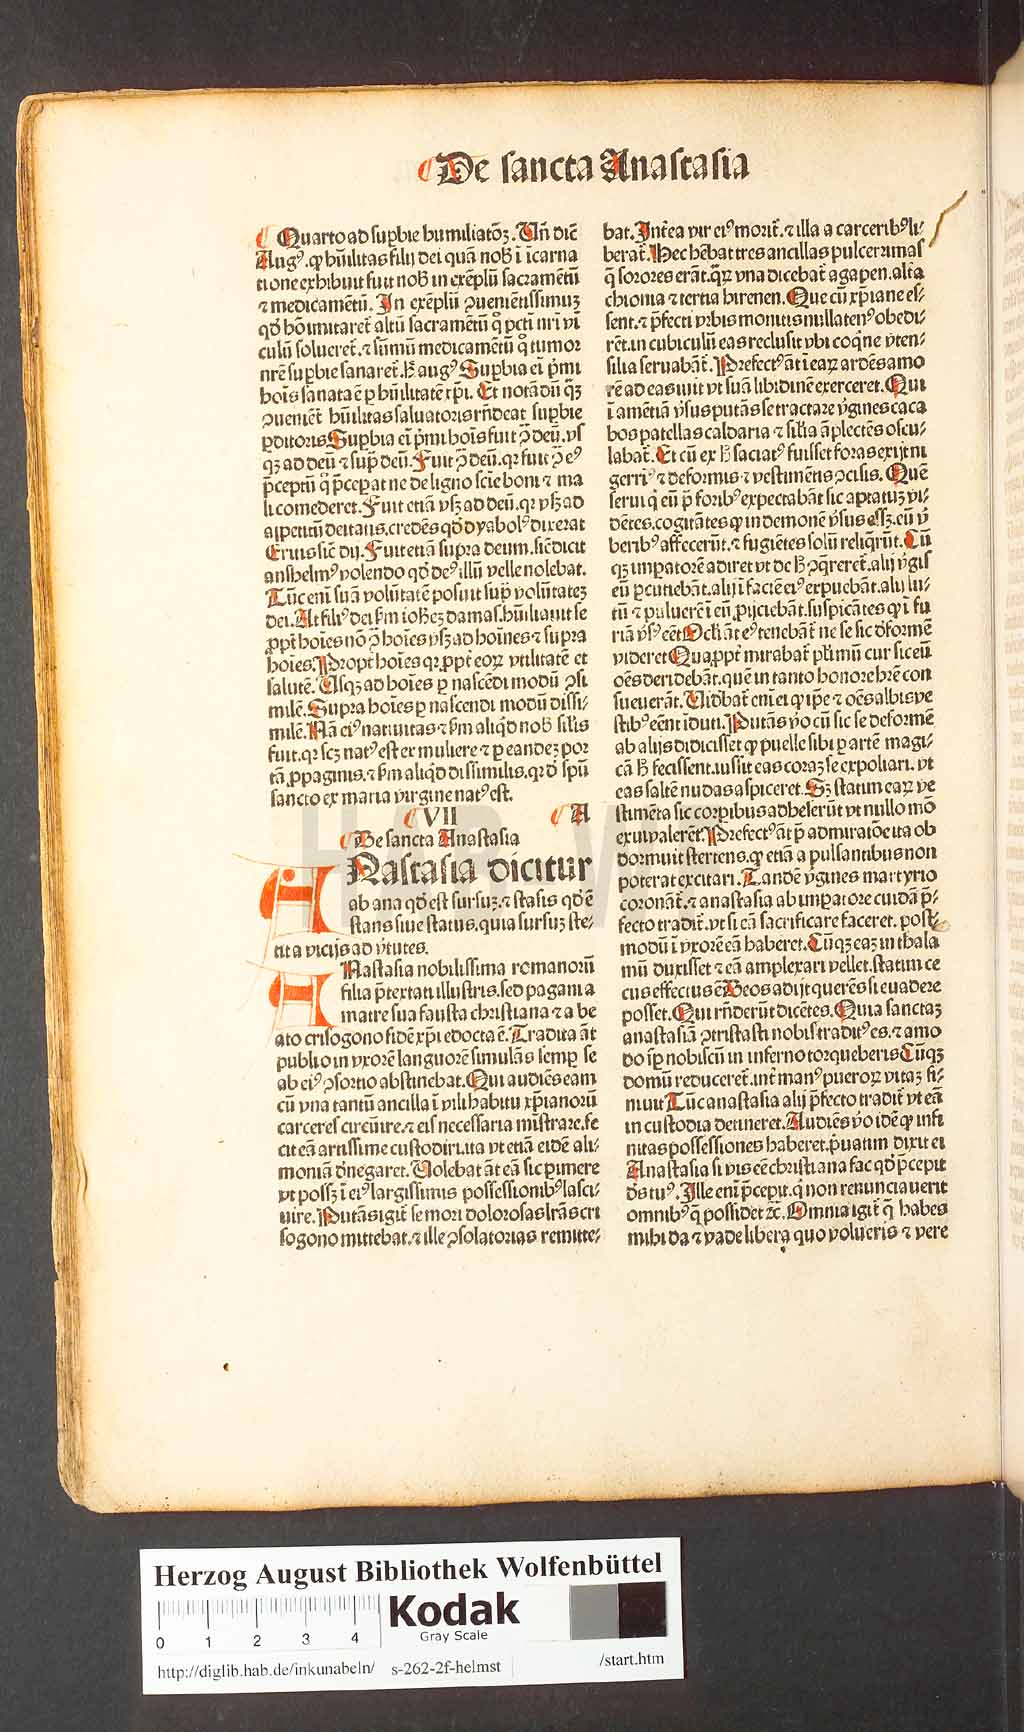 De sancta Anastasia
Quarto ad supbie humiliatōꝫ. Uñ dic̄
Augꝰ. ꝙ hūilitas filij dei quā nob̄ ī īcarna
tione exhibuit fuit nob̄ in exēplū sacramētū
⁊ medicamētū. In exēplū ꝯuenientissimuꝫ
qd̄ hō imitaret᷑. altū sacramētū qͦ pctī nr̄i vī
culū solueret᷑. ⁊ sūmū medicamētū qͦ tumor
nr̄e supbie sanaret᷑. h̄ augꝰ Supbia ei̅ p̄mi
hoīs sanata ē ꝑ hūilitatē xp̄i. Et notādū qꝫ
ꝯueniēt᷑ hūilitas saluatoris rn̄deat supbie
ꝓditoris. Supbia ei̅ p̄mi hoīs fuit ꝯ̄ deū. vs
qꝫ ad deū ⁊ sup̄ deū. Fuit ꝯ̄ deū. qꝛ fuit ꝯ̄ eꝰ
p̄ceptū qͦ p̄cepat ne de ligno scīe boni ⁊ ma
li comederet. Fuit etiā vsꝫ ad deū. qꝛ vsꝫ ad
aspectum deitatis. credēs qd̄ dyabolꝰ dixerat
Eritis sic̄ dij. Fuit etiā supra deum. sic̄ dicit
anshelmꝰ volendo qd̄ deꝰ illū velle nolebat.
Tūc eni̅ suā volūtatē posuit sup̄ volūtateꝫ
dei. At filiꝰ dei ẜm ioh̄eꝫ damaẜ. hūiliauit se
ꝓpt̄ hoīes nō ꝯ̄ hoīes vsꝫ ad hoīnes ⁊ supra
hoīes. Propt̄ hoīes qꝛ ꝓpt̄ eoꝝ vtilitatē et
salutē. Usqꝫ ad hoīes ꝑ nascēdi modū ꝯsi
milē. Supra hoīes ꝑ nascendi modū dissi⸗
milē. Nā eiꝰ natiuitas ⁊ ẜm aliqd̄ nob̄ siĺis
fuit. qꝛ scꝫ natꝰ est ex muliere ⁊ ꝑ eandeꝫ por
tā ꝓpaginis. ⁊ ẜm aliqd̄ dissimilis. qꝛ d̄ spū
sancto ex maria virgine natꝰ est.
VII A
De sancta Anastasia
ANastasia dicitur
ab ana qd̄ est sursuꝫ. ⁊ stasis qd̄ ē
stans siue status. quia sursuꝫ ste⸗
tit a vicijs ad v̄tutes.
ANastasia nobilissima romanorū
filia p̄textati illustris. sed pagani a
matre sua fausta christiana ⁊ a be
ato crisogono fidē xp̄i edocta ē. Tradita āt
publio in vxorē languorē simulās semp̄ se
ab eiꝰ ꝯsortio abstinebat. Qui audiēs eam
cū vna tantū ancilla ī vili habitu xp̄ianorū
carceres circūire. ⁊ eis necessaria mīstrare. fe
cit eā artissime custodiri. ita vt etiā eidē ali⸗
moniā d̄negaret. Volebat āt eā sic ꝑimere
vt possꝫ ī eiꝰ largissimis possessionibꝰ lasci⸗
uire. Putās igit᷑ se mori dolorosas lr̄as cri
sogono mittebat. ⁊ ille ꝯsolatorias remitte⸗
bat. Int̄ea vir eiꝰ morit᷑. ⁊ illa a carceribꝰ li⸗
berat᷑. Hec hēbat tres ancillas pulcerrimas
q̄ sorores erāt. qꝝ vna dicebat᷑ agapen. alt̄a
chionia ⁊ tertia hirenen. Que cū xp̄iane es⸗
sent. ⁊ p̄fecti vrbis monitis nullatenꝰ obedi⸗
rēt. in cubiculū eas reclusit vbi coqͥne vten⸗
silia seruabāt᷑. Prefectꝰ āt ī eaꝝ ardēs amo
rē ad eas iuit vt suā libidinē exerceret. Qui
ī amētiā v̄sus putās se tractare v̄gines caca
bos patellas caldaria ⁊ siĺia āplectēs oscu⸗
labat᷑. Et cū ex h̄ saciatꝰ fuisset foras exijt ni
gerriꝰ ⁊ deformis ⁊ vestimētis ꝯcisis. Quē
serui qͥ eū p̄ foribꝰ expectabāt sic aptatuꝫ vi⸗
dētes. cogitātes ꝙ in demonē v̄sus essꝫ. eū v̄
beribꝰ affecerūt. ⁊ fugiētes solū reliqͥrūt. Cū
qꝫ impatorē adiret vt de h̄ ꝯqͥreret᷑. alij v̄gis
eū ꝑcutiebāt. alij ī faciē eiꝰ expuebāt. alij lu⸗
tū ⁊ puluerē ī eū ꝓijciebāt. suspicātes ꝙ ī fu
riā v̄sꝰ eēt Ocli āt eꝰ tenebāt᷑ ne se sic d̄formē
videret Quaꝓpt̄ mirabat᷑ plͥmū cur sic eū
oēs deridebāt. quē in tanto honore hr̄e con
sueuerāt. Vidbat᷑ eni̅ ei ꝙ ip̄e ⁊ oēs albis ve
stibꝰ eēnt īduti. Putās v̄o cū sic se deformē
ab alijs didicisset ꝙ puelle sibi ꝑ artē magi⸗
cā h̄ fecissent. iussit eas coraꝫ se expoliari. vt
eas saltē nudas aspiceret. Sꝫ statim eaꝝ ve
stimēta sic corpibus adheserūt vt nullo mō
exui valerēt. Prefectꝰ āt p̄ admiratōe ita ob
dormiuit stertens. ꝙ etiā a pulsantibus non
poterat excitari. Tandē v̄gines martyrio
coronāt᷑. ⁊ anastasia ab impatore cuidā p̄⸗
fecto tradit᷑. vt si eā sacrificare faceret. post
modū ī vxorē eā haberet. Cūqꝫ eaꝫ in thala
mū duxisset ⁊ eā amplexari vellet. statim ce
cus effectus ē Deos adijt querēs si euadere
posset. Qui rn̄derūt dicētes. Quia sanctaꝫ
anastasiā ꝯtristasti nobis traditꝰ es. ⁊ amo
do sp̄ nobiscū in inferno torqueberis Cūqꝫ
domū reduceret᷑. int̄ manꝰ pueroꝝ vitaꝫ fi⸗
niuit Tūc anastasia alij p̄fecto tradit᷑ vt eā
in custodia detineret. Audiēs v̄o idē ꝙ infi
nitas possessiones haberet. p̄uatim dixit ei
Anastasia si vis eē christiana fac qd̄ p̄cepit
dn̄s tuꝰ. Ille eni̅ p̄cepit. qͥ non renunciauerit
omnibꝰ q̄ possidet ⁊c̄. Omnia igit᷑ q̄ habes
mihi da ⁊ vade libera quo volueris ⁊ vere
HAB-WF
Herzog August Bibliothek Wolfenbüttel
0 1 2 3 4
Kodak
Gray Scale
http://diglib.hab.de/inkunabeln/ s-262-2f-helmst /start.htm